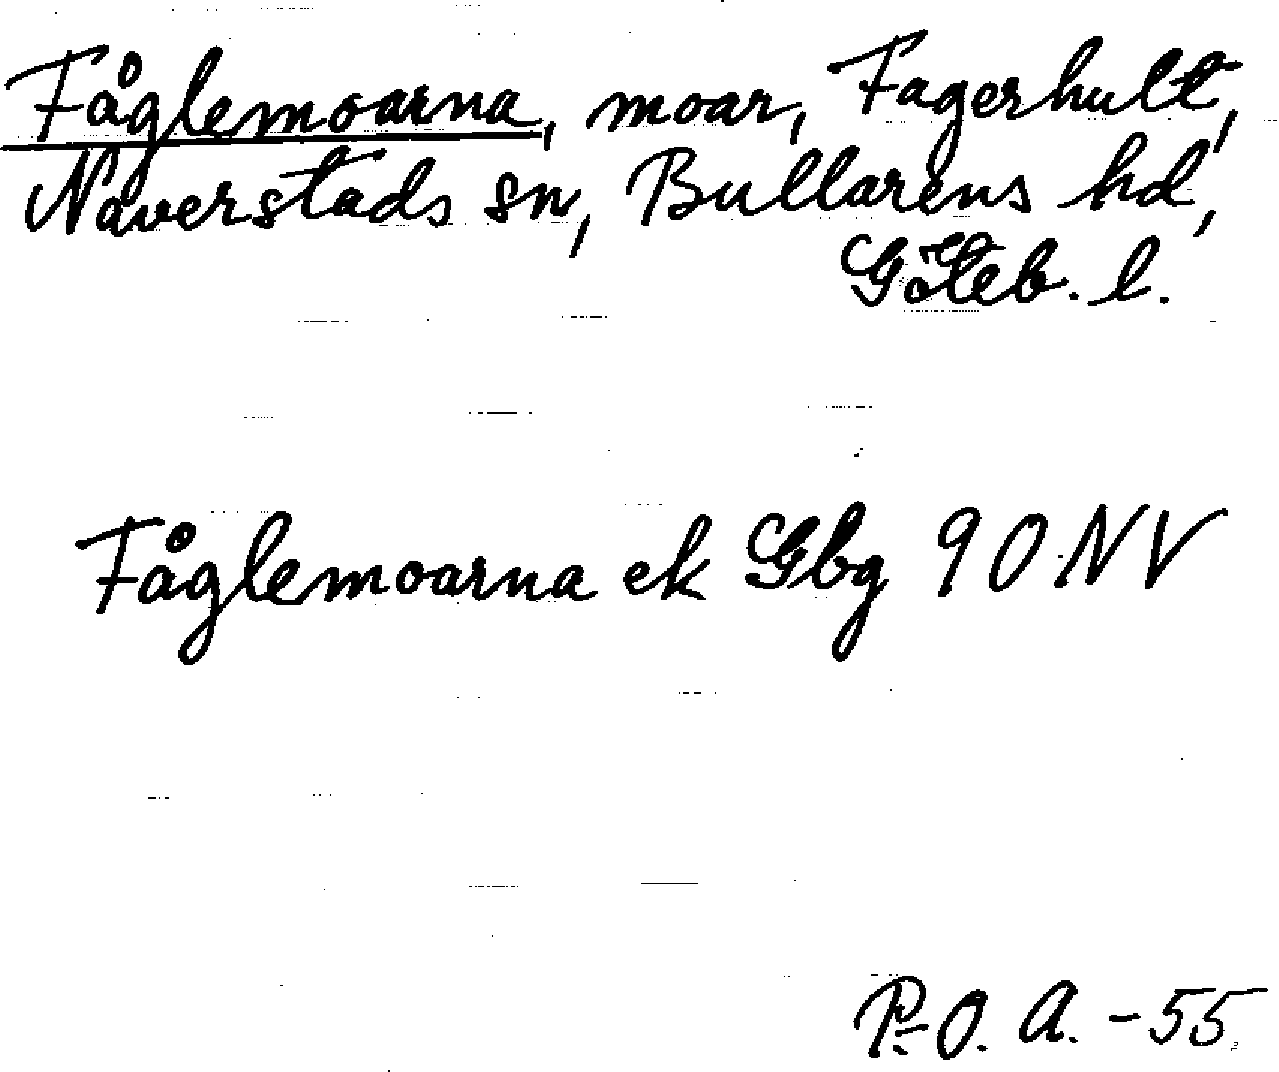 Fåglemoarna, moar, Fagerhult,
Naverstads sn, Bullarens hd,
Göteb. l.
Fåglemoarna ek Gbg 90 NV
P.-O. A. - 55